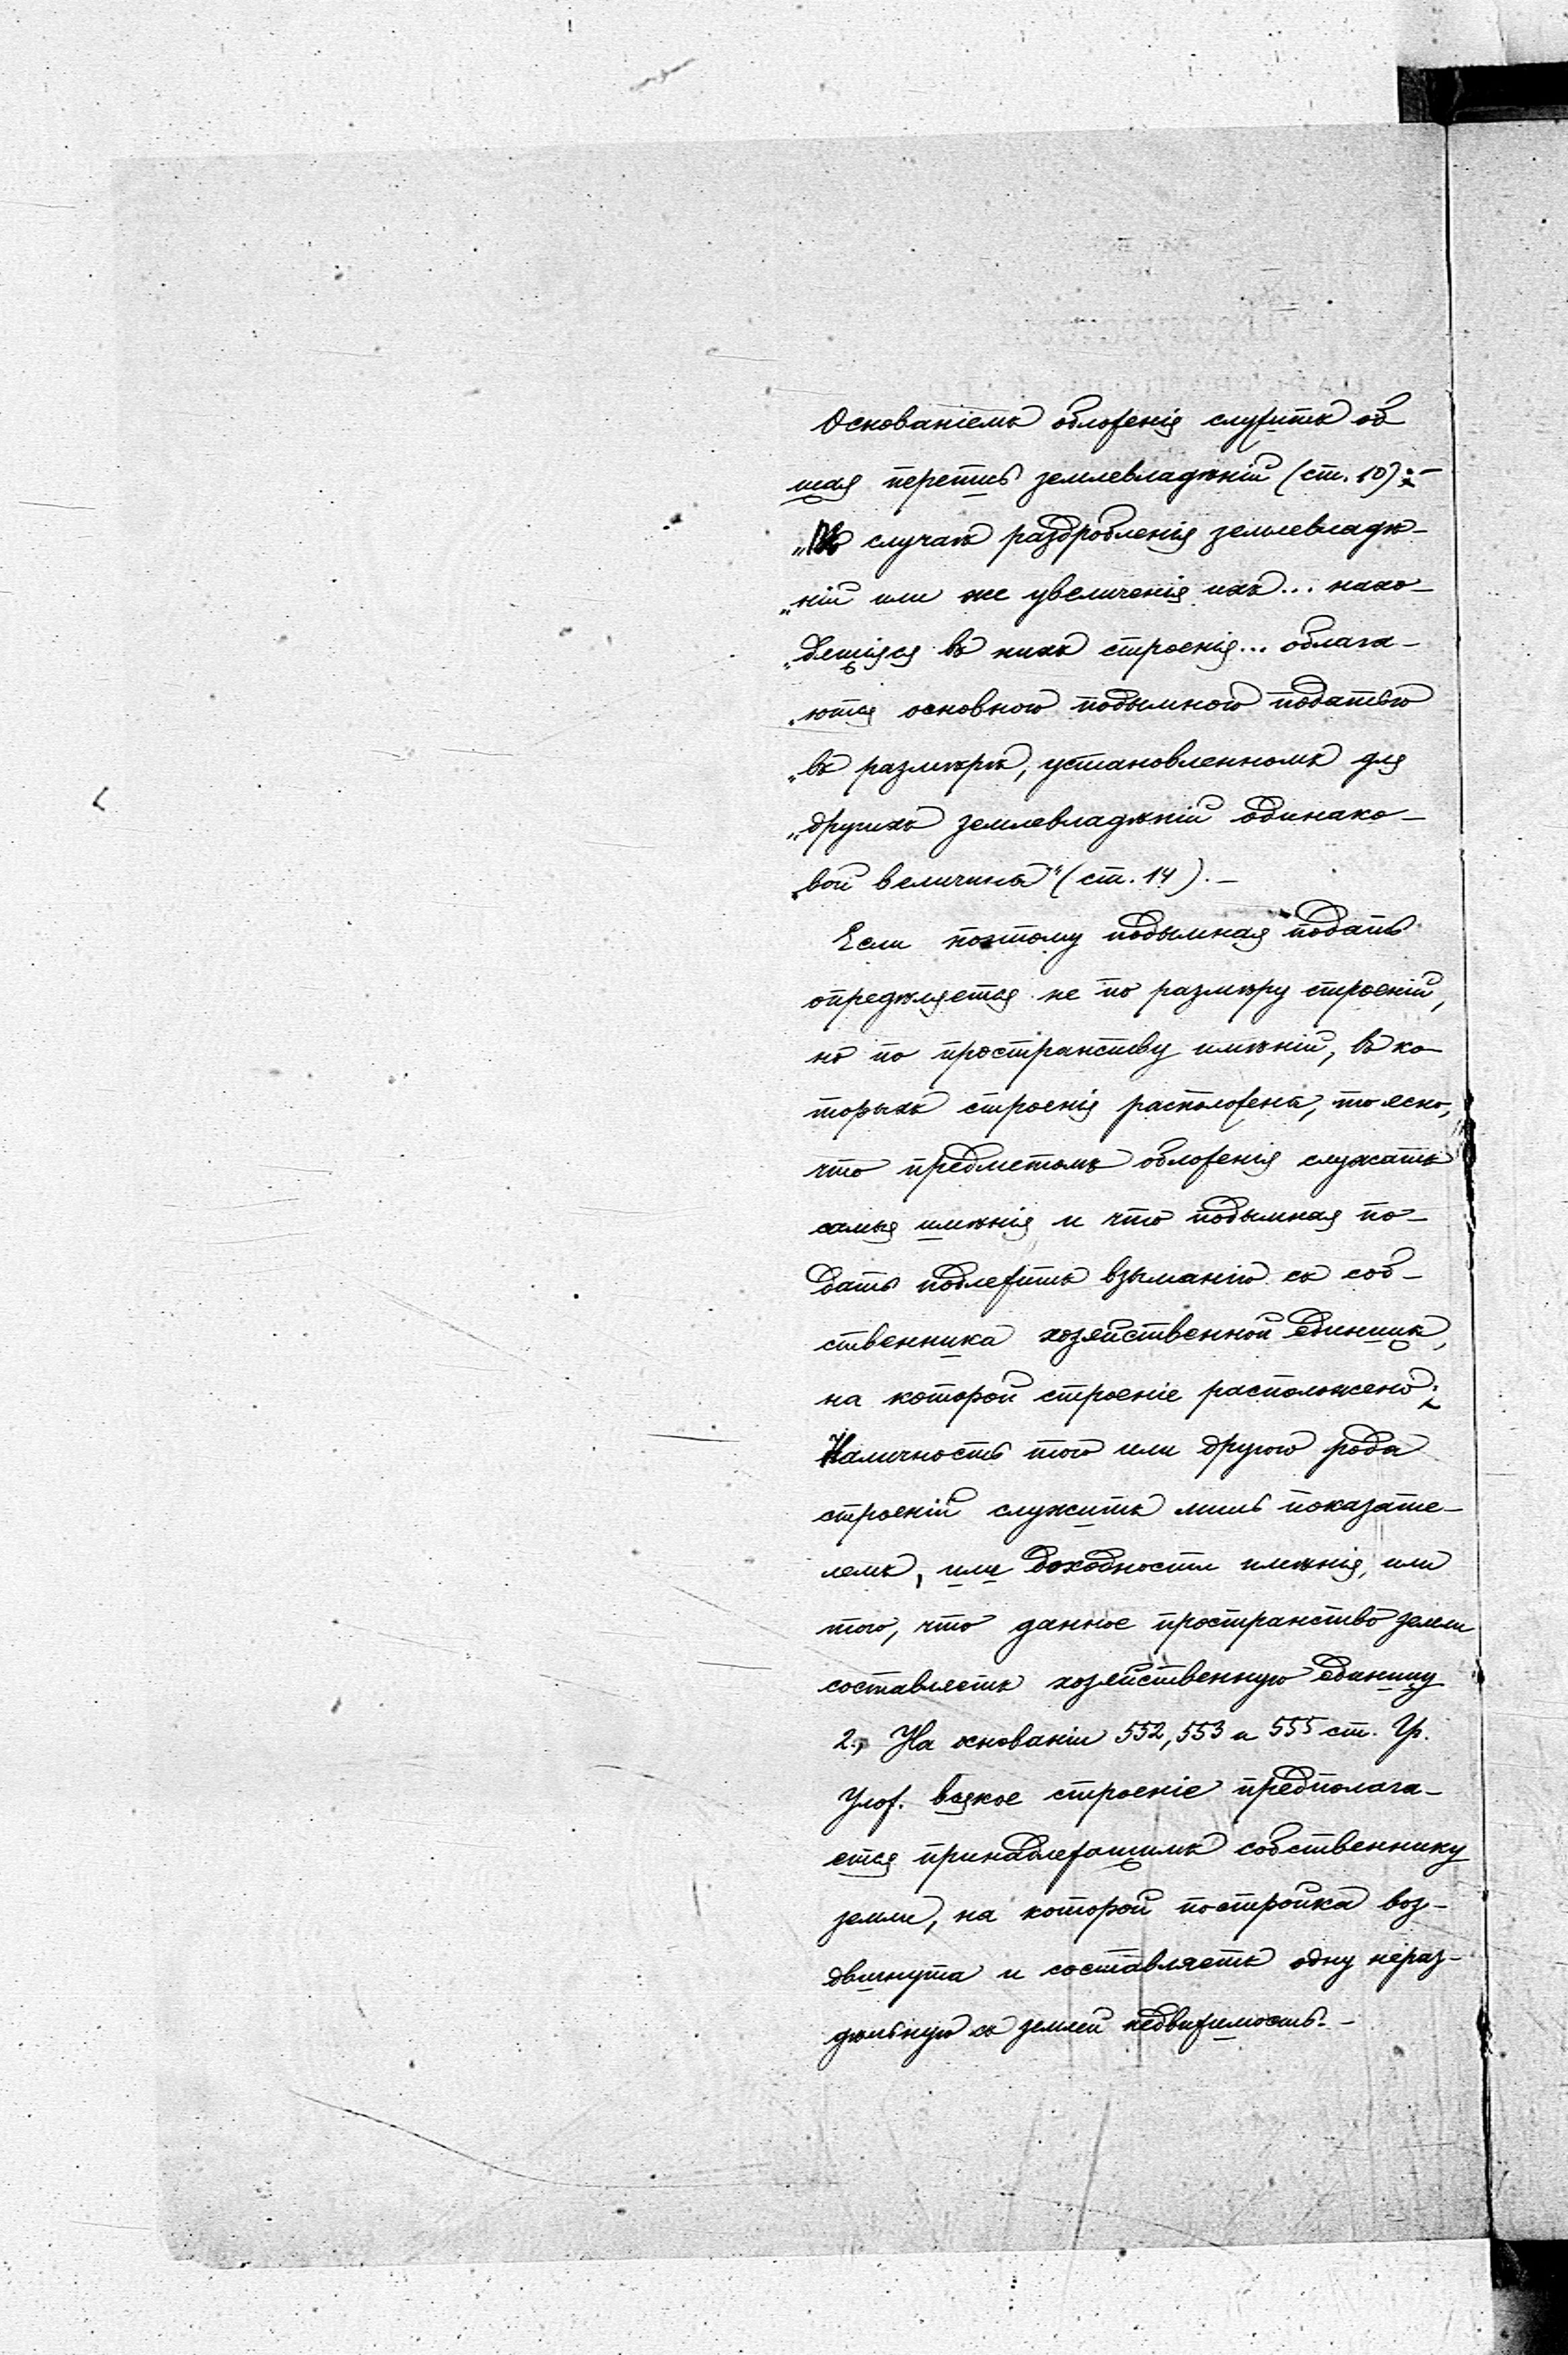 Основаніемъ обложенія служитъ об
щая перепись землевладѣній (ст. 10):-
„Въ случаѣ раздробленія землевладѣ-
„ній или же увеличенія ихъ... нахо-
„дящіяся въ нихъ строенія... облага-
„ются основною подымною податью
„въ размѣрѣ, установленномъ для
„другихъ землевладѣній одинако-
„вой величины" (ст. 14).-
Если поэтому подымная подать
опредѣляется не по размѣру строеній,
но по пространству имѣній, въ ко
торыхъ строенія расположены, то ясно,
что предметомъ обложенія служатъ
самыя имѣнія и что подымная по-
дать подлежитъ взыманію съ соб-
ственника хозяйственной единицы,
на которой строеніе расположено;
Наличность того или другого рода
строеній служитъ лишь показате-
лемъ, или доходности имѣнія, или
того, что данное пространство земли
составляетъ хозяйственную единицу
2., На основаніи 552, 553 и 555 ст. Гр.
Улож. всякое строеніе предполага-
ется принадлежащимъ собственнику
земли, на которой постройка воз-
двигнута и составляетъ одну нераз-
дѣльную съ землей недвижимость.-